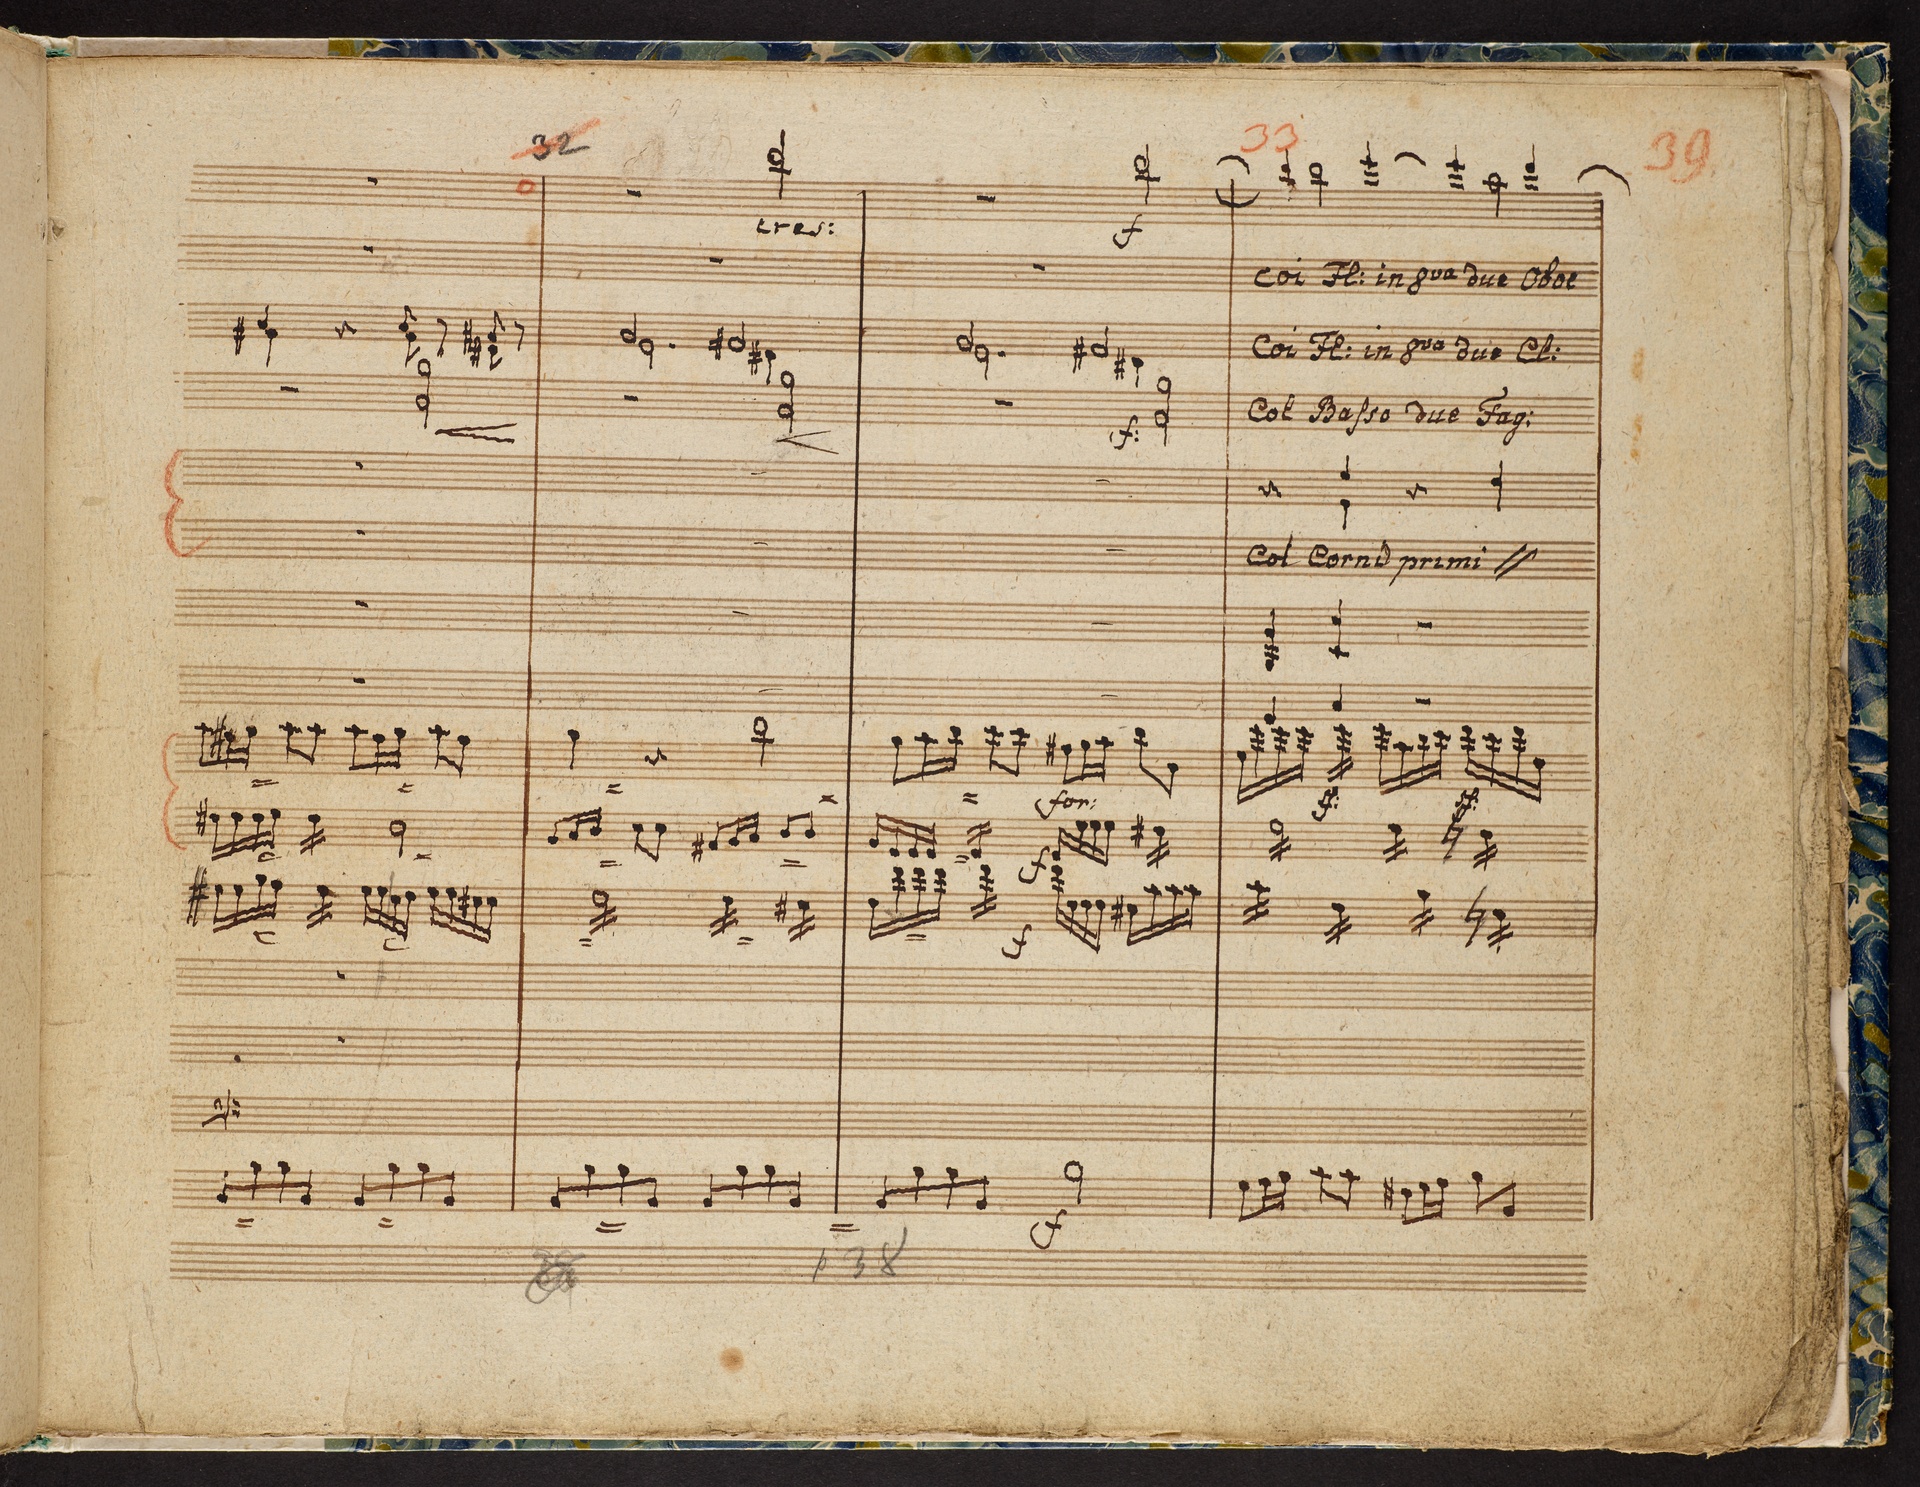 32
33
39.
cres:
f
Coi Fl: in 8va due Oboe
Coi Fl: in 8va due Cl:
f:
Col Basso due Fag:
Col Corni primi //
for:
f:
f:
f
f
f
138